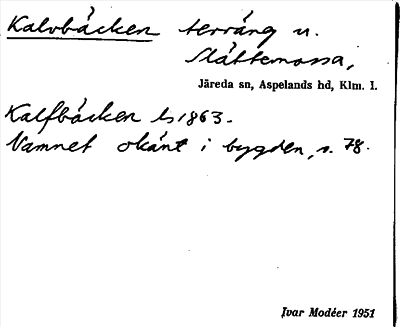 Kalvbäcken terräng u.
Slättemossa,
Järeda sn, Aspelands hd, Klm. l.
Kalfbäcken ls 1863.
Namnet okänt i bygden, s. 78.
Ivar Modéer 1951